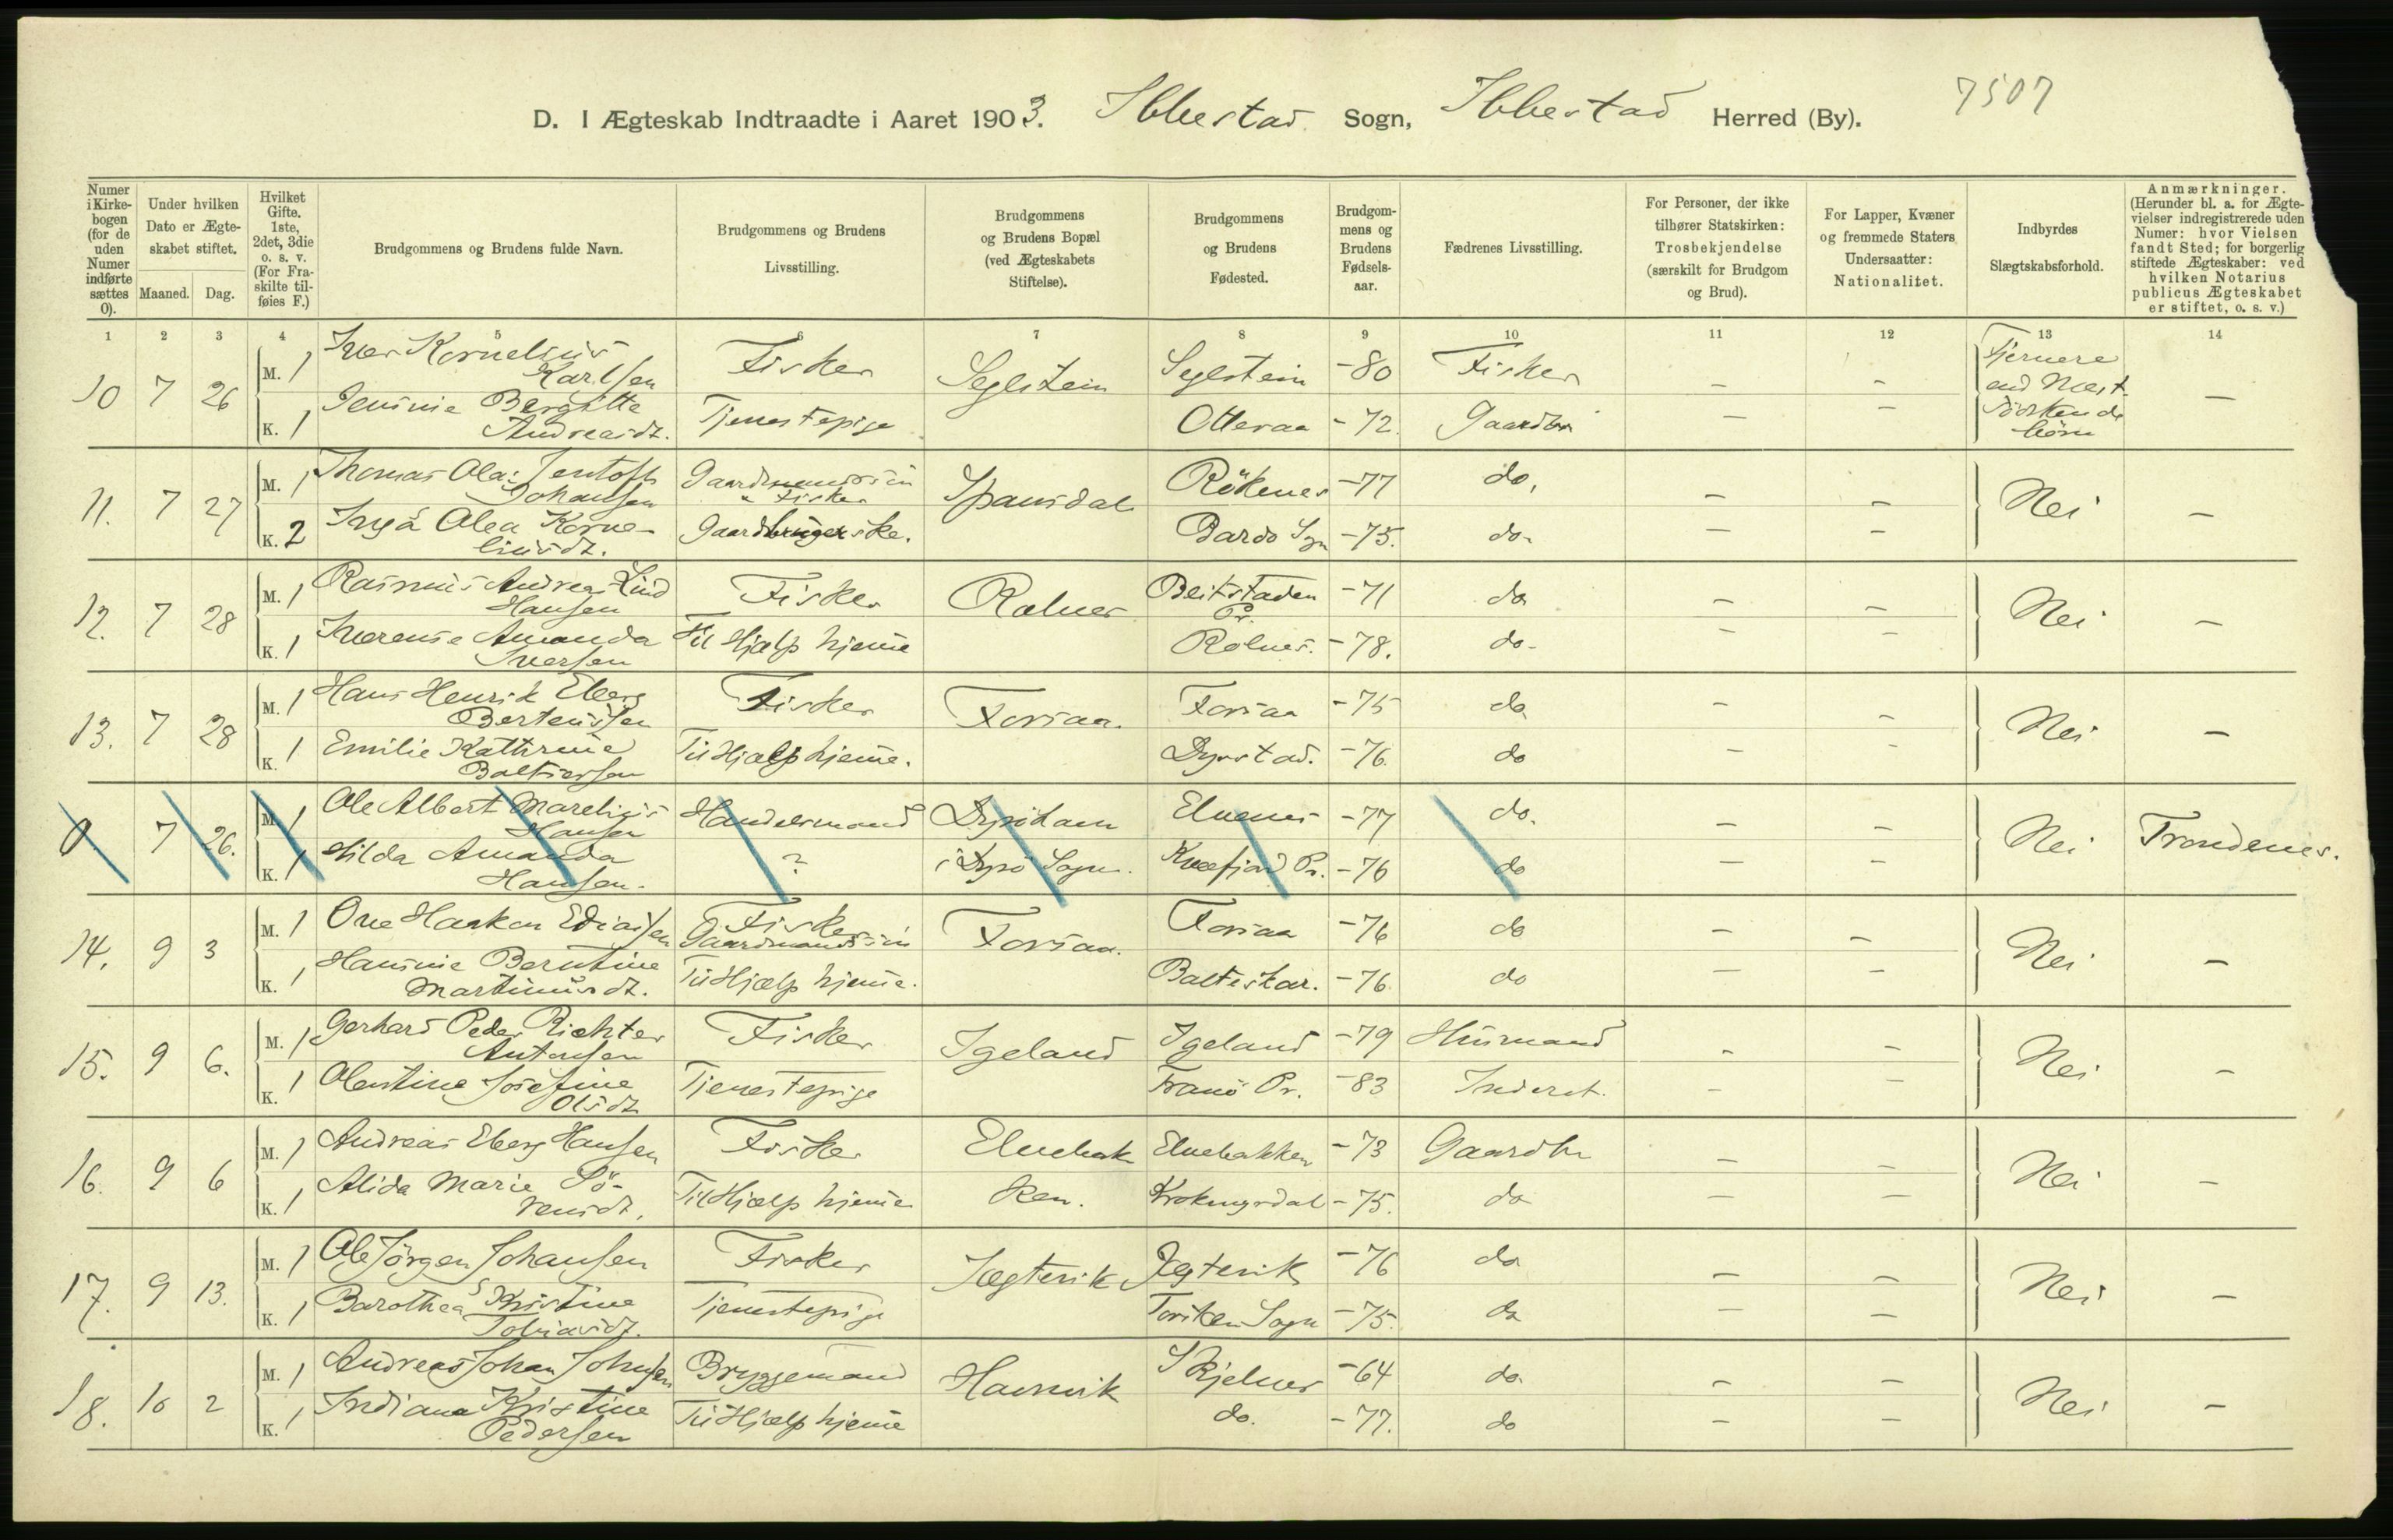 D. I Ægteskab Indtraadte i Aaret 1903. Ibbestad Sogn, Ibbestad Herred (By). 7507
Numer i Kirkebogen (for de uden Numer indførte sættes 0).
Under hvilken Dato er Ægteskabet stiftet.
Maaned. Dag.
Hvilket Gifte. 1ste, 2det, 3die o. s. v. (For Fraskilte tilføies F.)
Brudgommens og Brudens fulde Navn.
Brudgommens og Brudens Livsstilling.
Brudgommens og Brudens Bopæl (ved Ægteskabets Stiftelse).
Brudgommens og Brudens Fødested.
Brudgommens og Brudens Fødselsaar.
Fædrenes Livsstilling.
For Personer, der ikke tilhører Statskirken: Trosbekjendelse (særskilt for Brudgom og Brud).
For Lapper, Kvæner og fremmede Staters Undersaatter: Nationalitet.
Indbyrdes Slægtskabsforhold.
Anmærkninger. (Herunder bl. a. for Ægtevielser indregistrerede uden Numer: hvor Vielsen fandt Sted; for borgerlig stiftede Ægteskaber: ved hvilken Notarius publicus Ægteskabet er stiftet, o. s. v.)
1 2 3 4 5 6 7 8 9 10 11 12 13 14
10 7 26 M. 1 Iver Kornelius Karlsen Fisker Seglstein Seglstein -80 Fisker - - Fjernere end Næstsødskendebørn -
K. 1 Jennie Bergitte Andreasdt. Tjenestepige Otteraa -72. Gaardbr - -
11. 7 27 M. 1 Thomas Olai Jentoft Johansen Gaardmandssøn & Fisker Spansdal Rökenes -77 do, - - Nei -
K. 2 Inga Olea Korneliusdt. Gaardbrugerske. Bardo Sgn -75. do. - -
12. 7 28 M. 1 Rasmus Andreas Lind Hansen Fisker Rolnes Beitstaden Pr. -71 do - - Nei -
K. 1 Iverense Amanda Iversen Til Hjælp hjemme Rolnes. -78. do. - -
13. 7 28 M. 1 Hans Henrik Eberg Bertenssen Fisker Forsaa. Forsaa -75 do - - Nei -
K. 1 Emilie Kathrine Baltsersen Til Hjælp hjemme. Dyrstad. -76. do - -
0 7 26. M. 1 Ole Albert Marelius Hansen Handelsmand Dyröhavn Elvenes -77 do. - - Nei Trondenes.
K. 1 Hilda Amanda Hansen. ? i Dyrö Sogn. Kvæfjord Pr. -76 do - -
14. 9 3 M. 1 Ove Haakon Ediassen Fisker Gaardmandssön Forsaa. Forsaa -76 do - - Nei -
K. 1 Hannie Berntine Martinusdt. Til Hjælp hjemme. Balteskar. -76. do - -
15. 9 6. M. 1 Gerhard Peder Richter Antonsen Fisker Igeland Igeland -79 Husmand - - Nei -
K. 1 Olentine Josefine Olsdt Tjenestepige Tranö Pr. -83 Inderst. - -
16. 9 6 M. 1 Andreas Eberg Hansen Fisker Elvebakken. Elvebakken -73 Gaardbr - - Nei -
K. 1 Alida Marie Sörensdt. Til Hjælp hjemme Krokmyrdal -75. do - -
17. 9 13. M. 1 Ole Jörgen Johansen Fisker Jægtevik Jægtevik -76 do - - Nei -
K. 1 Barothea Kristine Tobiasdt. Tjenestepige Torsken Sogn -75. do - -
18. 10 2 M. 1 Andreas Johan Johnsen Bryggemand Havnvik Skjelnes -64 do - - Nei -
K. 1 Indiana Kristine Pedersen Til Hjælp hjemme do. -77. do - -